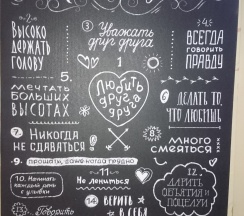 ·2·
ВЫСОКО
ДЕРЖАТЬ
ГОЛОВУ
3 Уважать
друг друга
·4·
ВСЕГДА
ГОВОРИТЬ
ПРАВДУ
5.
МЕЧТАТЬ
О БОЛЬШИХ
ВЫСОТАХ
Любить
друг
друга
6 ДЕЛАТЬ ТО,
ЧТО ЛЮБИШЬ
7 Никогда
НЕ СДАВАТЬСЯ!
8
МНОГО
СМЕЯТЬСЯ
·9· прощать, даже когда трудно
10. Начинать
каждый день
с улыбки
11
Не лениться
12.
ДАРИТЬ
ОБЪЯТИЯ И
ПОЦЕЛУИ
Говорить
14 ВЕРИТЬ
В СЕБЯ